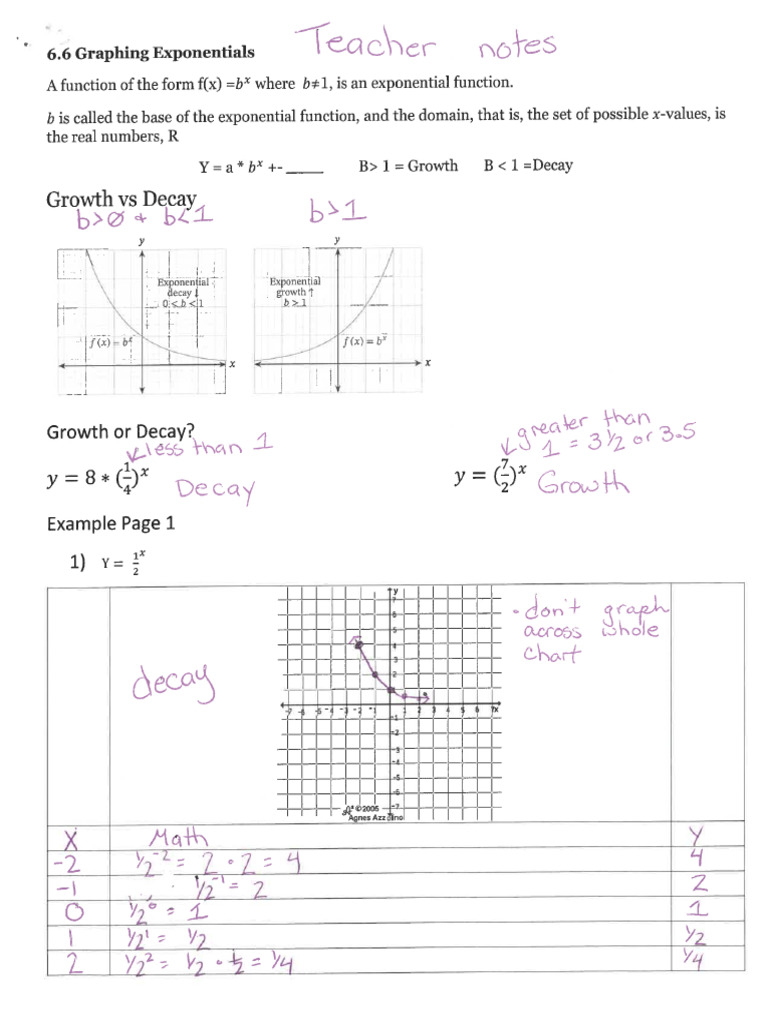 Teacher notes
6.6 Graphing Exponentials
A function of the form f(x) =bˣ where b≠1, is an exponential function.
b is called the base of the exponential function, and the domain, that is, the set of possible x-values, is
the real numbers, R
Y = a * bˣ +- ____ B> 1 = Growth B < 1 =Decay
Growth vs Decay
b>0 + b<1 b>1
y y
Exponential decay ↓ 0 < b < 1
f(x) = bˣ
x
Exponential growth ↑ b > 1
f(x) = bˣ
x
Growth or Decay?
less than 1
greater than
1 = 3 1/2 or 3.5
y = 8 * (1/4)ˣ Decay
y = (7/2)ˣ Growth
Example Page 1
1) Y = 1ˣ/2
decay
• don't graph
across whole
chart
y
7
6
5
4
3
2
-7 -6 -5 -4 -3 -2 -1 1 2 3 4 5 6 7x
-1
-2
-3
-4
-5
-6
-7
©2005
Agnes Azzolino
X Math Y
-2 1/2⁻² = 2 · 2 = 4 4
-1 1/2⁻¹ = 2 2
0 1/2⁰ = 1 1
1 1/2¹ = 1/2 1/2
2 1/2² = 1/2 · 1/2 = 1/4 1/4